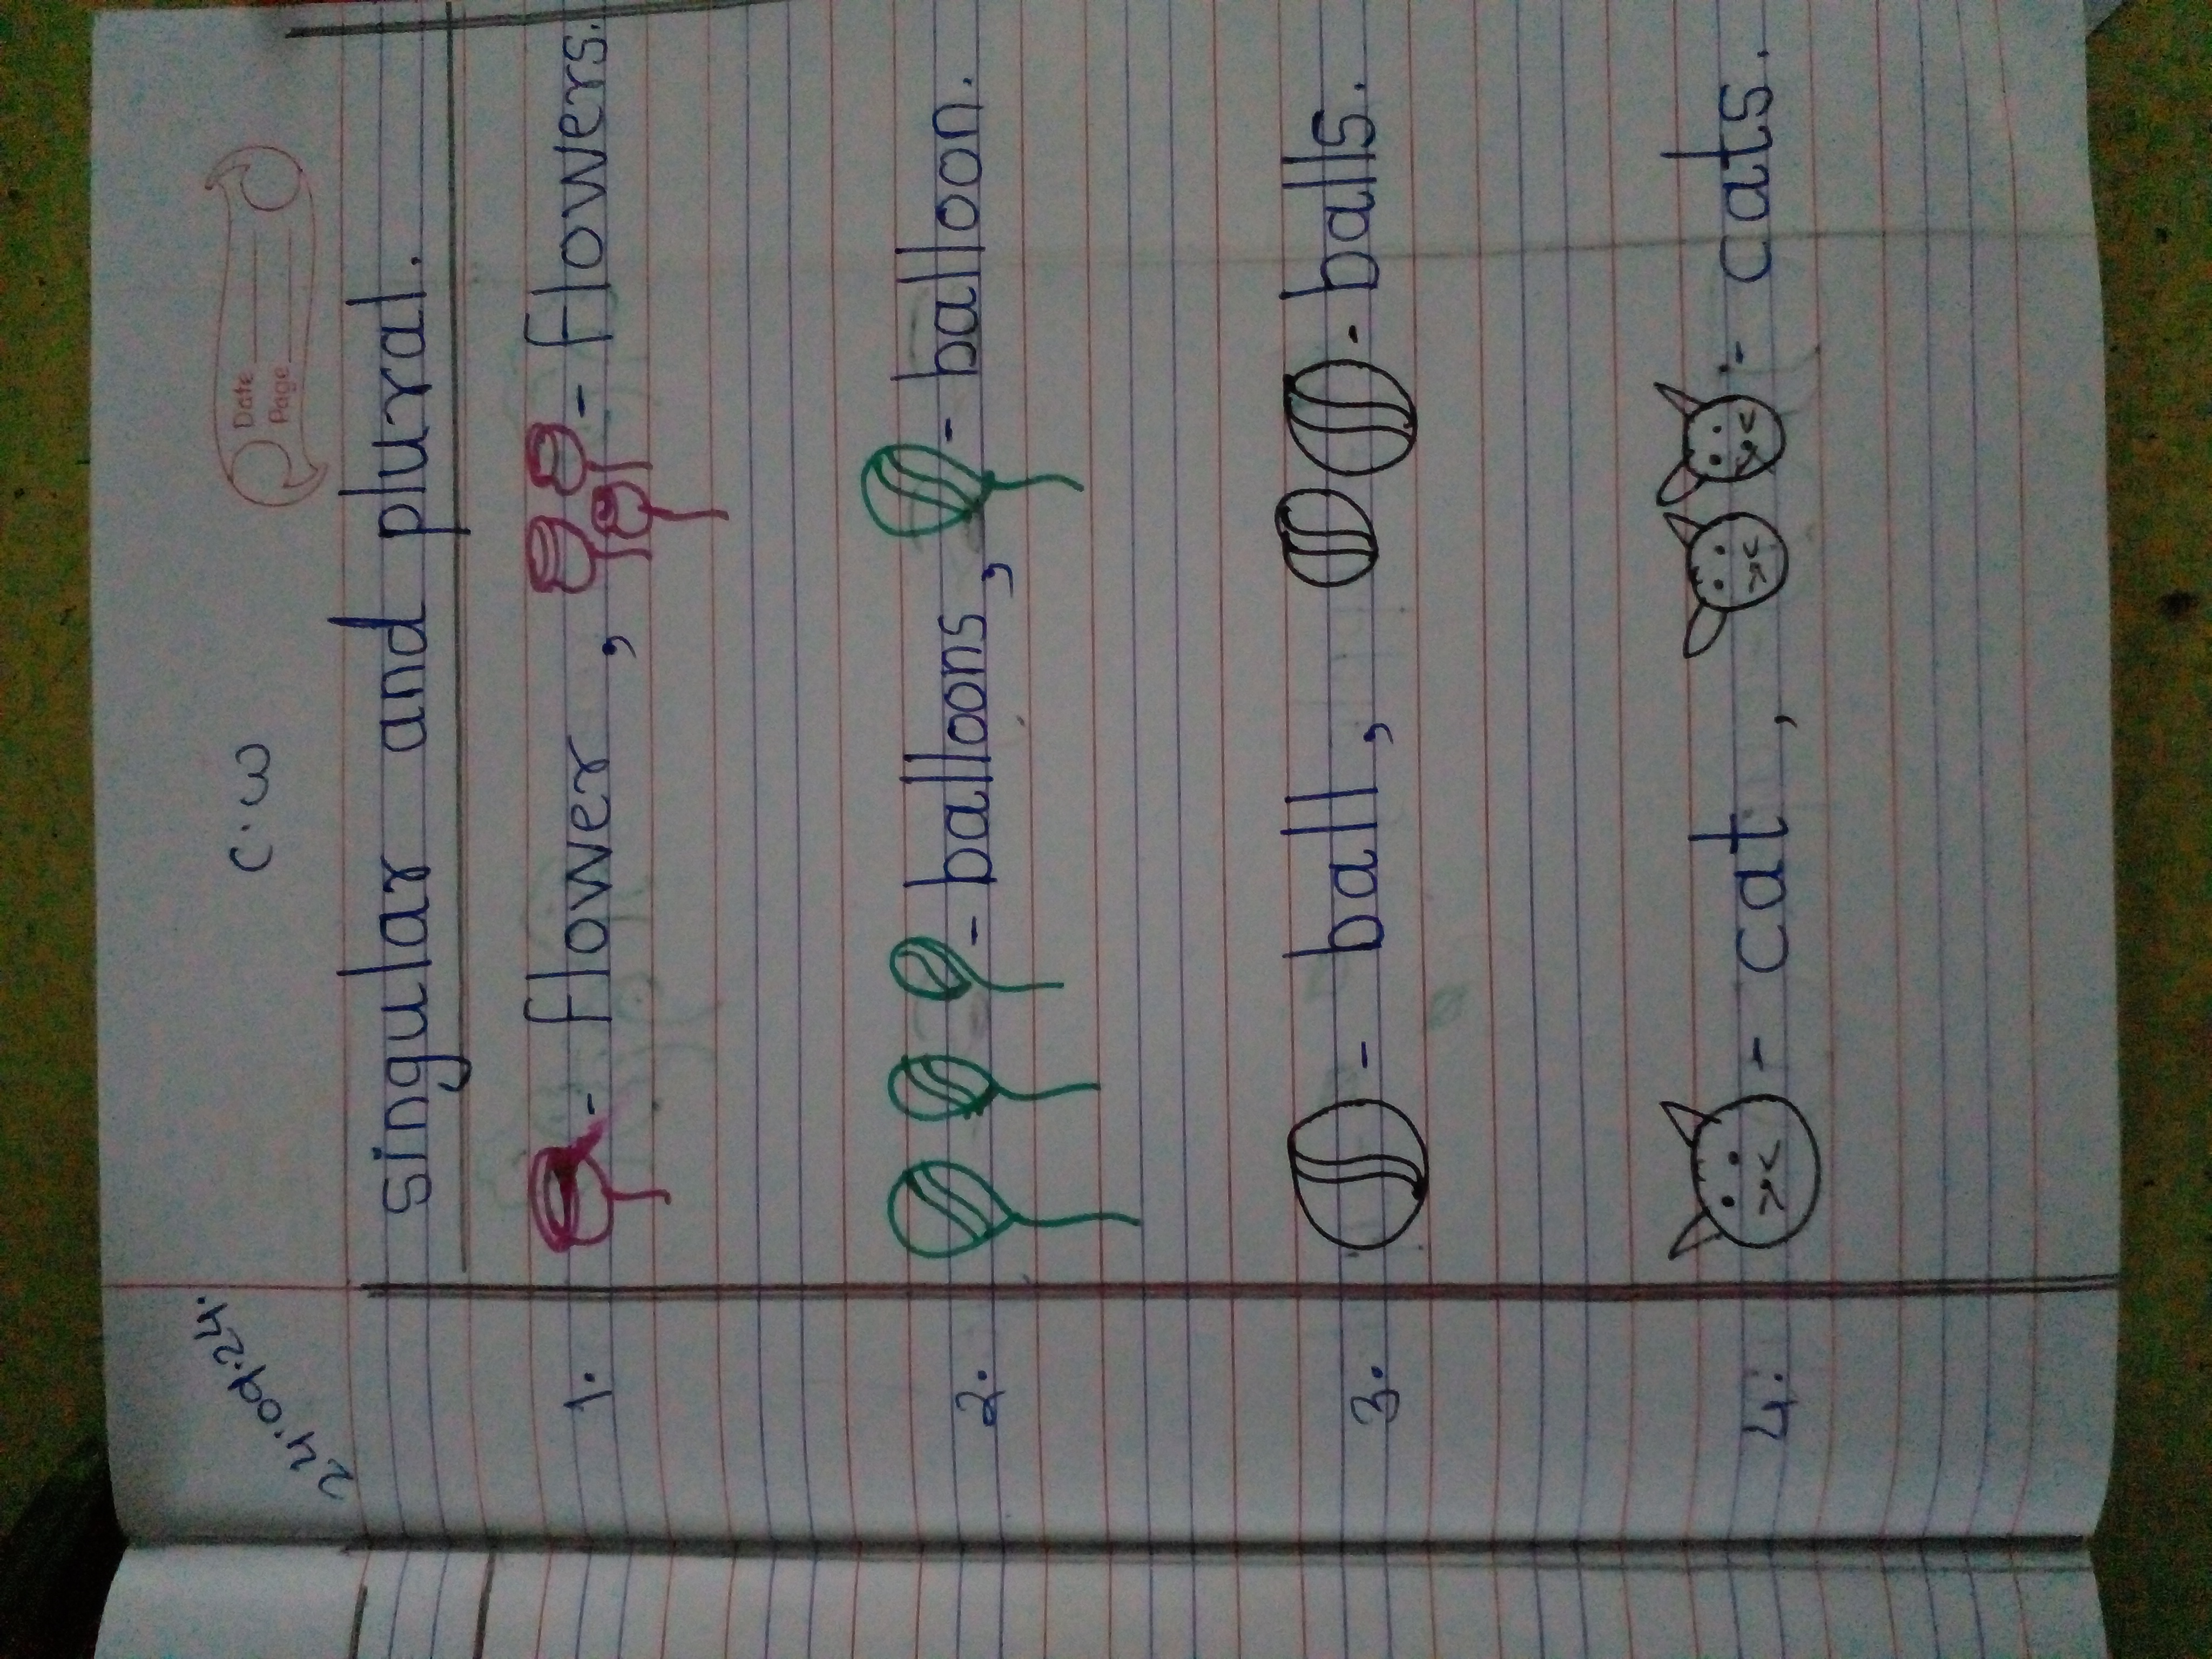 Date
Page
C.W
24.09.24.
singular and plural.
1. - flower , - flowers.
2. - balloons , - balloon.
3. - ball , - balls.
4. - cat , - cats.